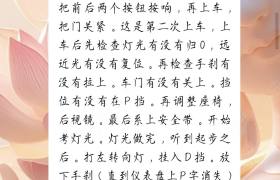 把前后两个按钮按响，再上车，
把门关紧。这是第二次上车，上
车后先检查灯光有没有归0，远
近光有没有复位。再检查手刹有
没有拉上。车门有没有关上。挡
位有没有在P挡。再调整座椅，
后视镜。最后系上安全带。开始
考灯光。灯光做完，听到起步之
后。打左转向灯，挂入D挡。放
下手刹（直到仪表盘上P字消失）